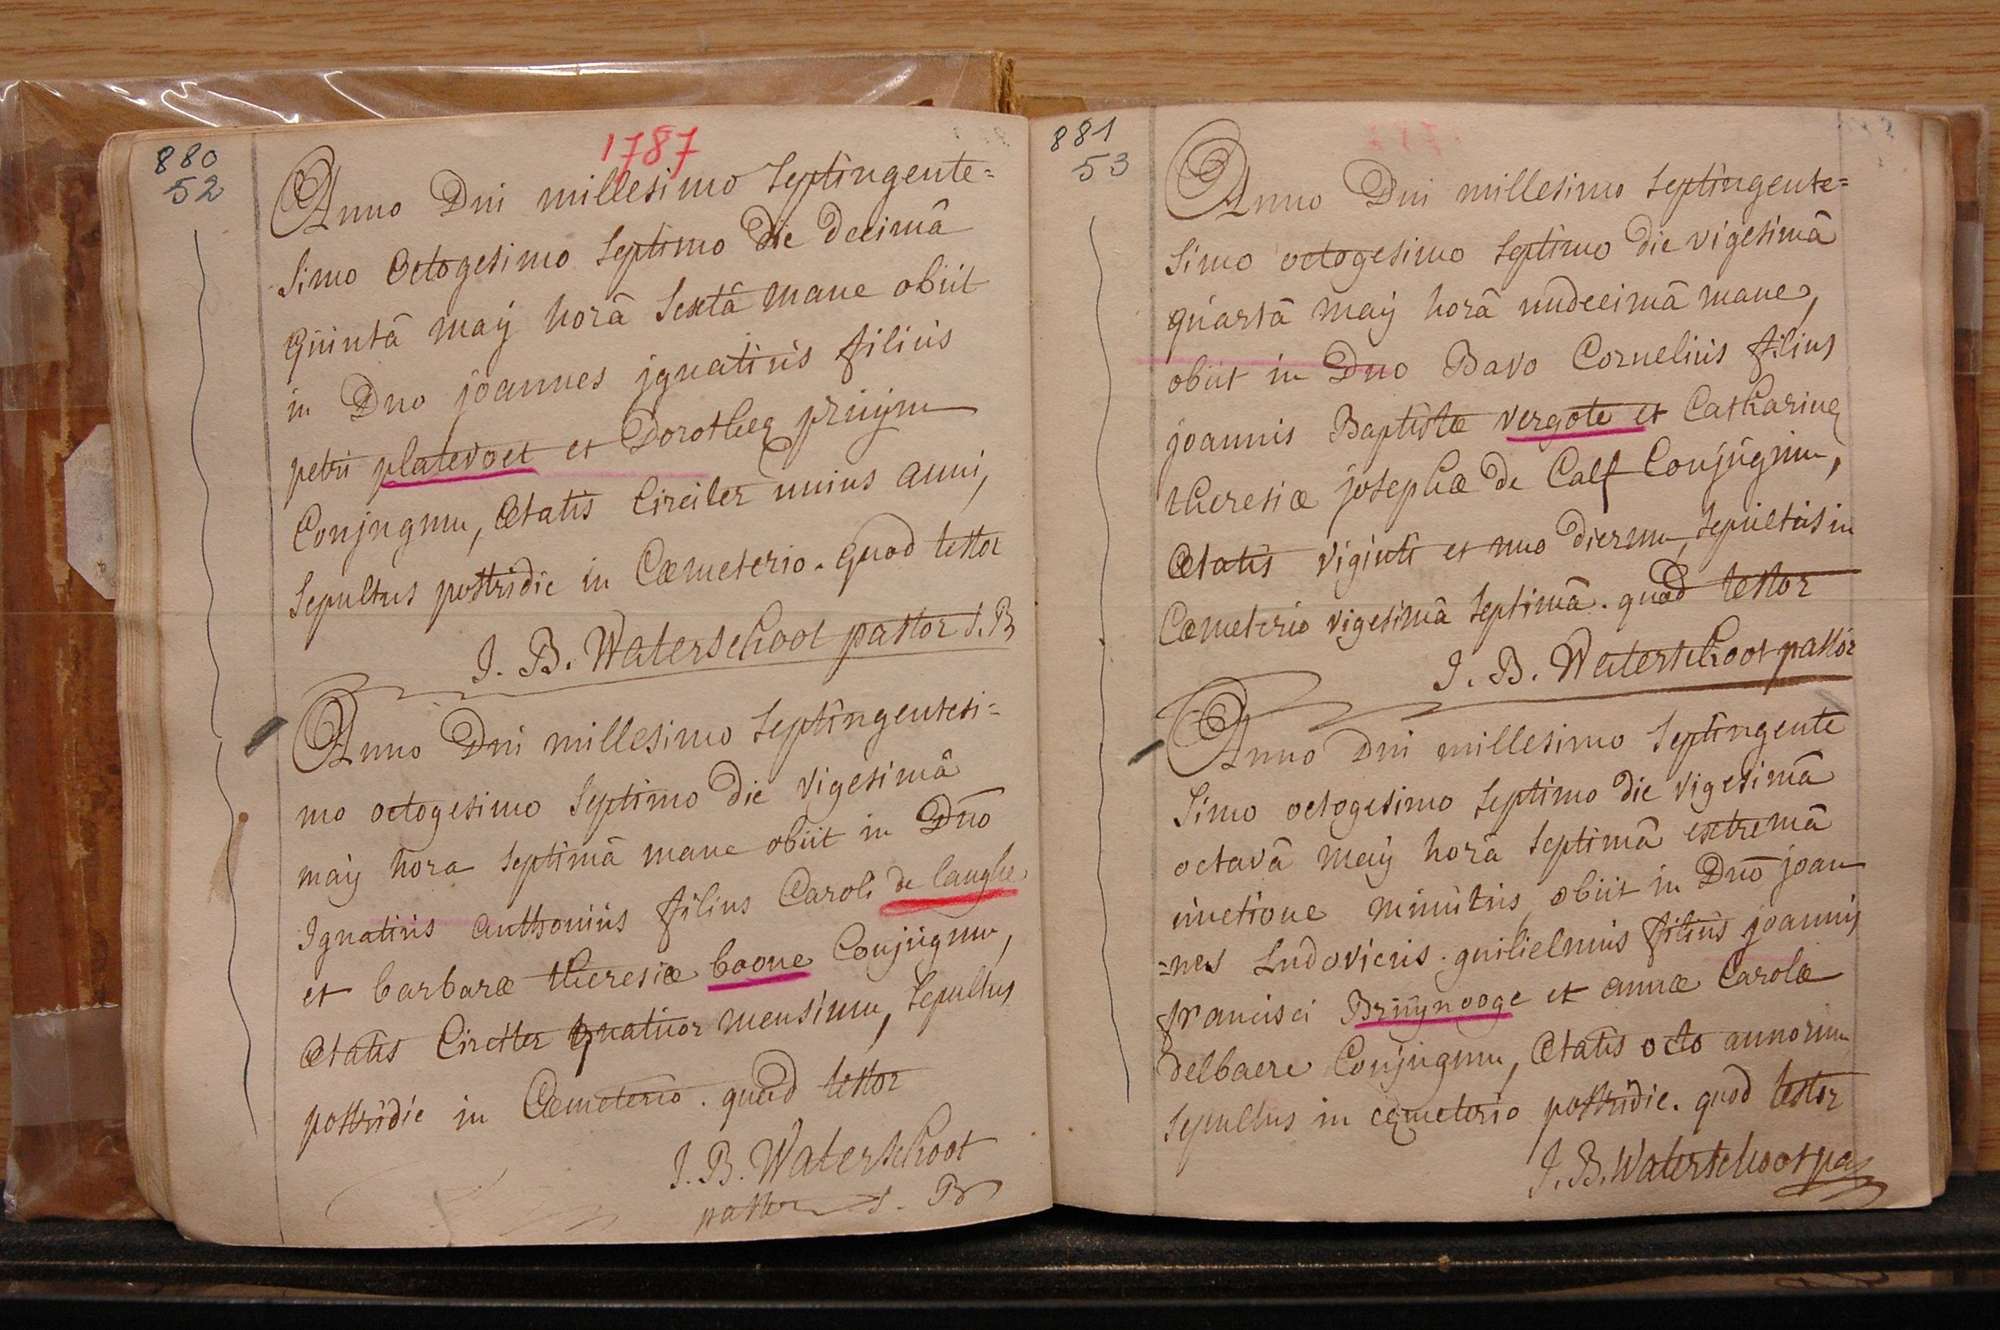 880
52
1787
Anno Dni millesimo septingente=
simo octogesimo septimo die decimâ
quintâ maÿ horâ sextâ mane obiit
in Dno joannes jgnatius filius
petri platevoet et Dorotheæ pruijm
Conjugum, ætatis Circiter unius anni,
sepultus postridie in Cæmeterio. quod testor
J. B. Waterschoot pastor S. B
Anno Dni millesimo septingentesi=
mo octogesimo septimo die vigesimâ
maÿ hora septimâ mane obiit in Dno
Ignatius anthonius filius Caroli de langhe
et barbaræ theresiæ boone Conjugum,
ætatis Circiter quatuor mensium, sepultus
postridie in Cæmeterio. quod testor
J. B. Waterschoot
pastor S. B
881
53
Anno Dni millesimo septingente=
simo octogesimo septimo die vigesimâ
quartâ maÿ horâ undecimâ mane,
obiit in Dno Bavo Cornelius filius
joannis Baptistæ vergote et Catharinæ
theresiæ josephæ de Calf Conjugum,
ætatis viginti et uno dierum, sepultus in
Cæmeterio vigesimâ septimâ. quod testor
J. B. Waterschoot pastor
Anno Dni millesimo septingente
simo octogesimo septimo die vigesimâ
octavâ maÿ horâ septimâ extremâ
unctione minutus, obiit in Dno joan
=nes Ludovicus guilielmus filius joannis
francisci Bruÿnooge et annæ Carolæ
delbaere Conjugum, ætatis octo annorum
sepultus in cæmeterio postridie. quod testor
J. B. Waterschoot pa